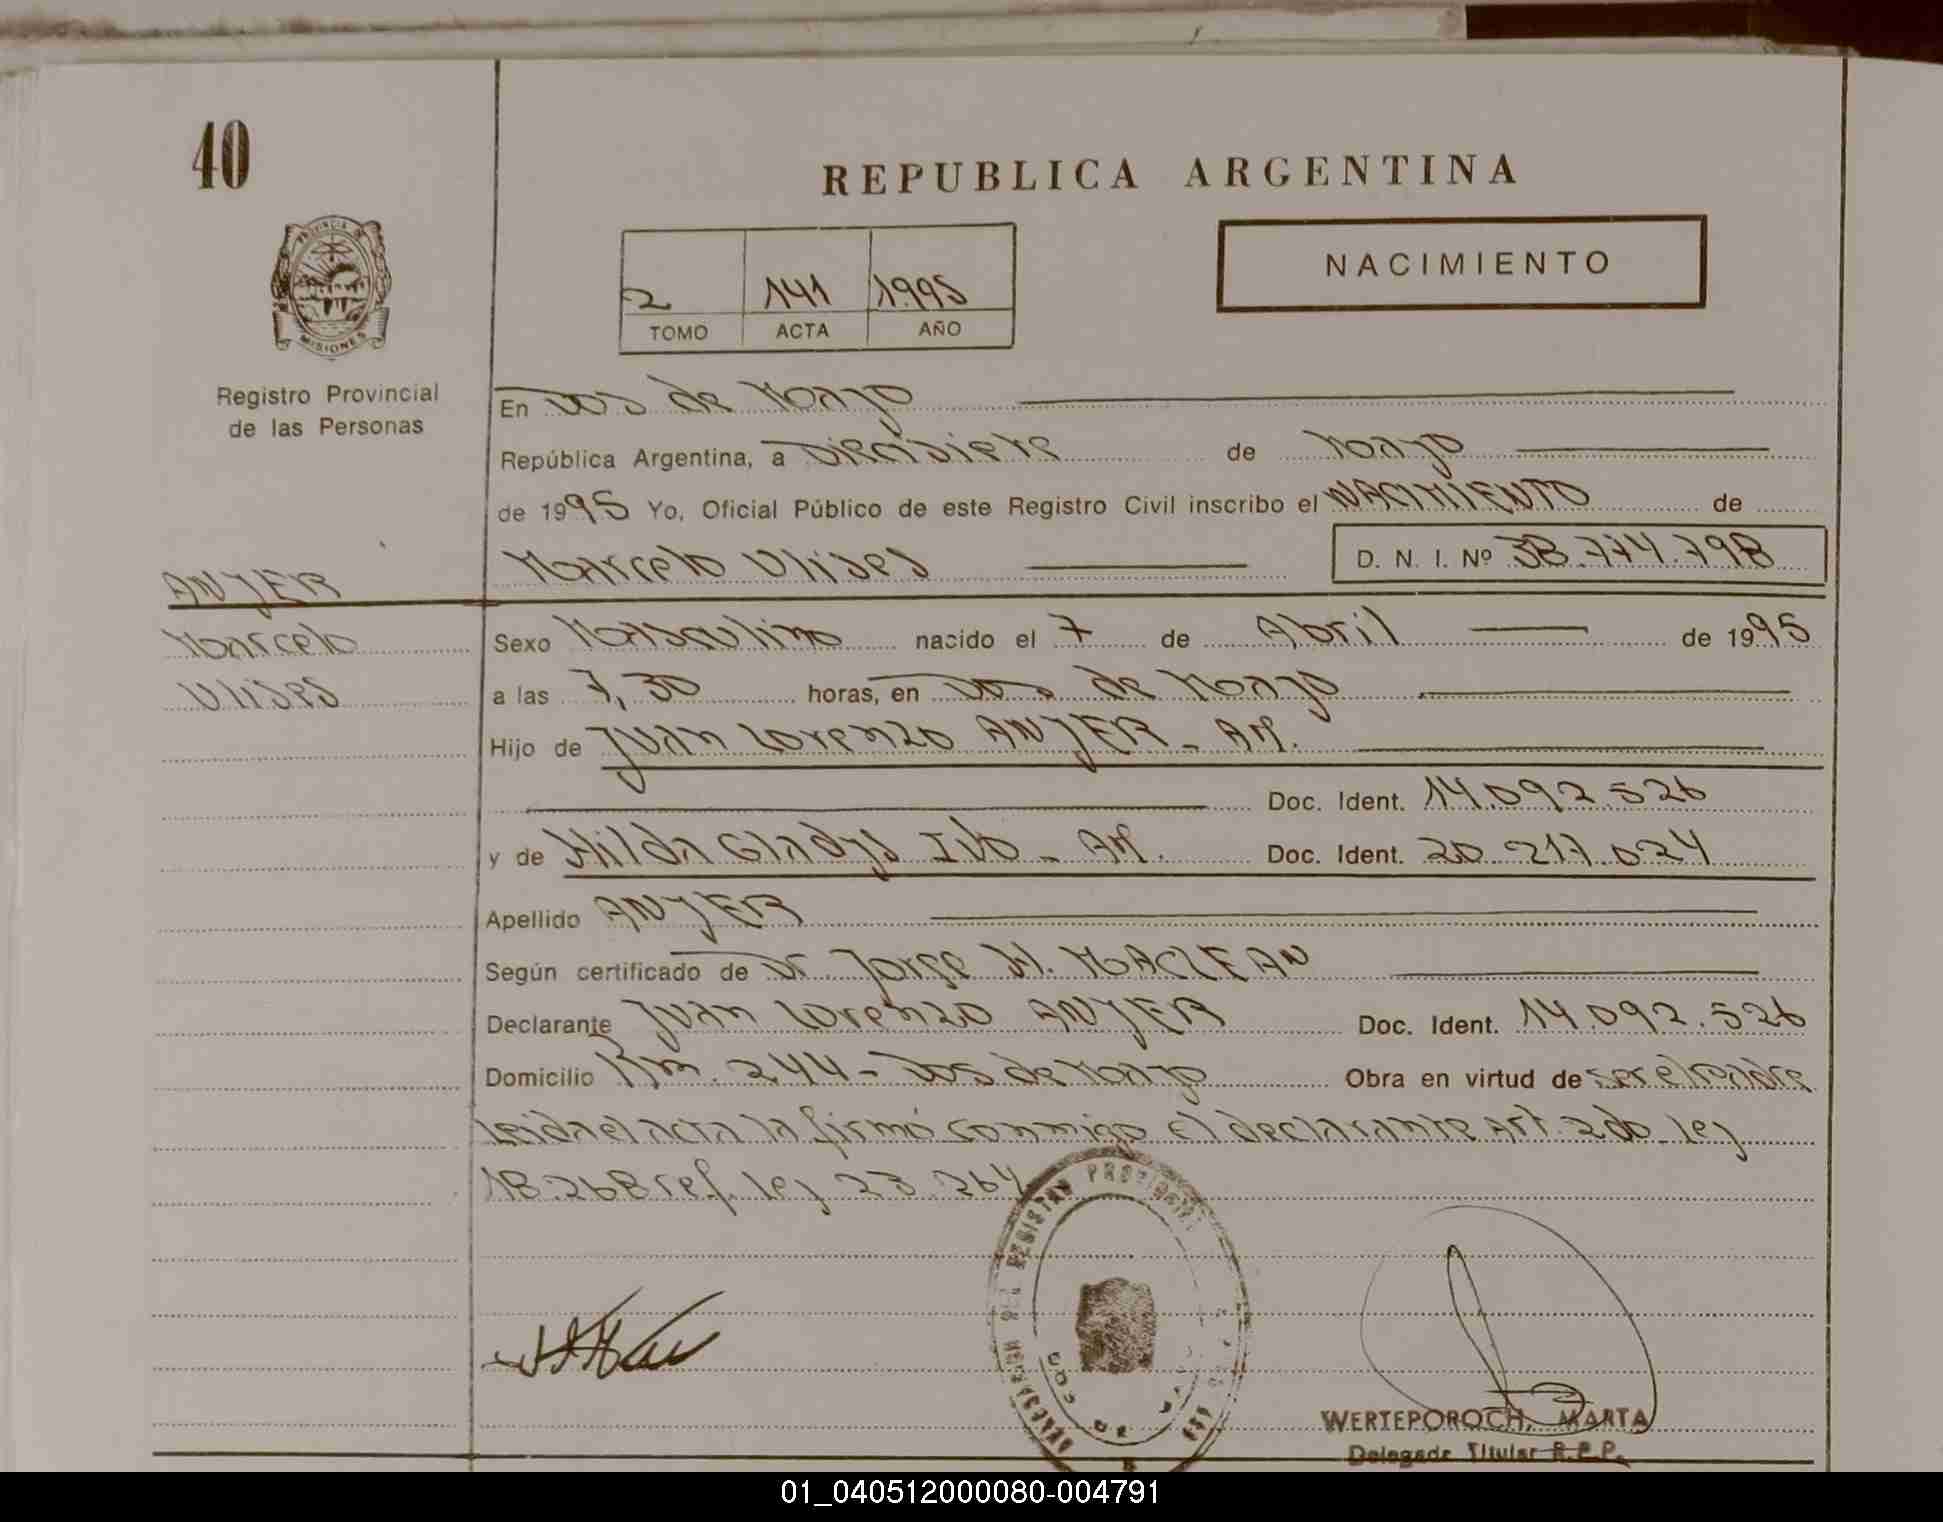 40
REPUBLICA ARGENTINA
PROVINCIA DE
MISIONES
Registro Provincial
de las Personas
2 141 1995
TOMO ACTA AÑO
NACIMIENTO
En Dos de Mayo
República Argentina, a Diecisiete de Mayo
de 1995 Yo, Oficial Público de este Registro Civil inscribo el NACIMIENTO de
Marcelo Ulises D. N. I. Nº 38.774.798
ANJER
Marcelo
Ulises
Sexo Masculino nacido el 7 de Abril de 1995
a las 7,30 horas, en Dos de Mayo
Hijo de Juan Lorenzo ANJER - AR.
Doc. Ident. 14.092.526
y de Hilda Gladys Ivo - AR. Doc. Ident. 20.217.024
Apellido ANJER
Según certificado de Dr. Jorge H. MACLEAN
Declarante Juan Lorenzo ANJER Doc. Ident. 14.092.526
Domicilio Km. 244 - Dos de Mayo Obra en virtud de ser el padre
Leida el acta la firmó conmigo el declarante Art. 2do. Ley
18.268 ref. Ley 23.264
WERTEPOROCH, MARTA
Delegada Titular R.P.P.
01_040512000080-004791